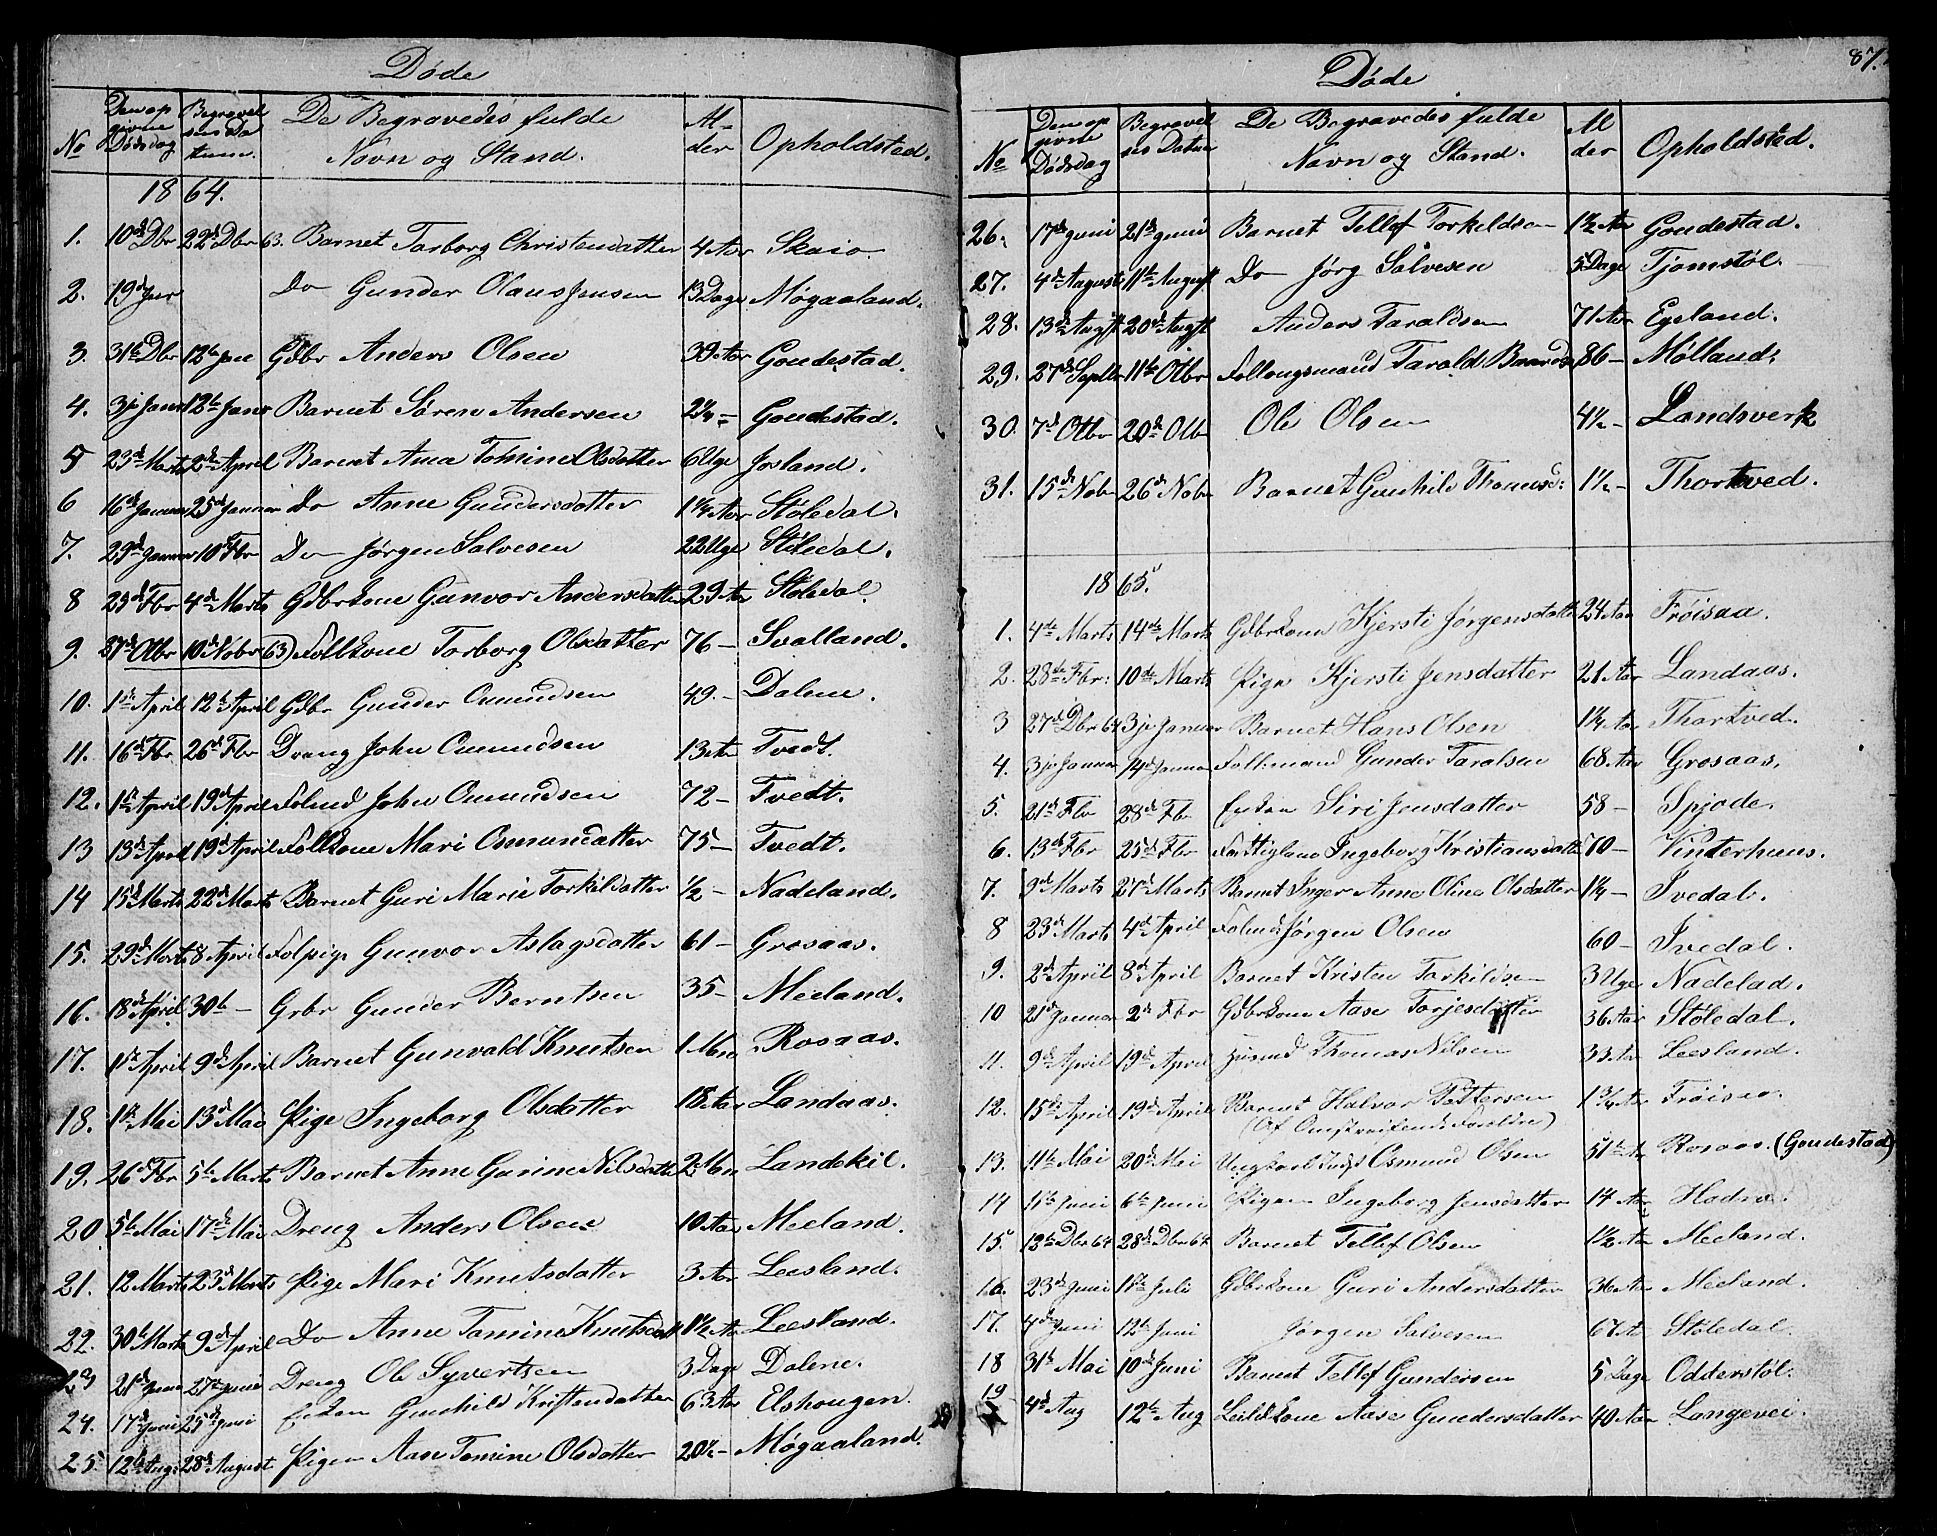 Døde
No Den op givne Dødsdag Begravelses Datum. De Begravedes fulde Navn og Stand. Alder Opholdsted.
1864.
1. 10de Dbr 22de Dbr 63. Barnet Torborg Christensdatter 4 Aar Skaio.
2. 19de Jan Do Gunder Olaus Jensen 13 Dage Møgaaland.
3. 31te Dbr 12te Jan Gdbr Anders Olsen 39 Aar Goudestad.
4. 3je Janr 12te Janr Barnet Søren Andersen 2¼ - Goudestad.
5 23de Marts 2de April Barnet Ana Tomine Olsdatter 6 Uge Josland.
6 16de Januar 25de Januar Do Anne Gundersdatter 1¼ Aar Støledal.
7. 29de Januar 10de Fbr Do Jørgen Salvesen 22 Uge Støledal.
8 23de Fbr 4de Marts Gdbrkone Gunvor Andersdatter 29 Aar Støledal.
9. 27de Otbr 10de Nobr (63) Follkone Torborg Olsdatter 76 - Svalland.
10. 1ste April 12te April Gdbr Gunder Osmundsen 49 - Dalene.
11. 16de Fbr 26de Fbr Dreng John Osmundsen 13 Aar Tvedt.
12. 1ste April 19de April Folmd John Osmundsen 72 - Tvedt.
13 13de April 19de April Follkone Mari Osmundsdatter 75 - Tvedt.
14 15de Marts 22de Marts Barnet Guri Marie Torkildatter ½ - Nadeland.
15. 29de Marts 8 April Folpige Gunvor Aslagsdatter 61 - Grosaas.
16. 18de April 30te - Grbr Gunder Berntsen 35 - Meeland.
17. 1ste April 9de April Barnet Gunvald Knutsen 1 Mnd Rosaas.
18. 1ste Mai 13de Mai Pige Ingeborg Olsdatter 18 Aar Landaas.
19. 26de Fbr 5te Marts Barnet Anne Gurine Nilsdatter 2 Mnd Landskil.
20. 5te Mai 17de Mai Dreng Anders Olsen 10 Aar Meeland.
21. 12 Marts 23de Marts Pige Mari Knutsdatter 3 Aar Leesland.
22. 30te Marts 9de April Do Anne Tomine Knutsdatt 1½ Aar Leesland.
23 21de Juni 27de Juni Dreng Ole Syvertsen 3 Dage Dalene.
24. 17de Juni 25de Juni Enken Gunhild Kristensdatter 63 Aar Elshougen.
25. 12te Augs 28de August Pigen Aase Tomine Olsdatter 20½ - Møgaaland.
87.
Døde
No Den op givne Dødsdag Begravelses Datum De Begravedes fulde Navn og Stand. Alder Opholdsted.
26. 17de Juni 21de Juni Barnet Tellef Torkildsen 1½ Aar Goudestad.
27. 4de August 11te August Do Jørg Salvesen 5 Dage Tjomstøl.
28. 13de Augst 20de Augst Anders Taraldsen 71 Aar Egeland.
29. 27de Septbr 11te Otbr Follaugsmand Tarald 86 - Mølland.
30. 7de Otbr 20de Otbr Ole Olsen 4½ - Landsverk
31. 15de Nobr 26de Nobr Barnet Gunhild Thomasd: 1½ - Thortved.
1865.
1. 4de Marts 14de Marts Gdbrkone Kjersti Jørgensdatter 24 Aar Frøisaa.
2. 28de Fbr: 10de Marts Pige Kjersti Jensdatter 21 Aar Landaas.
3 27de Dbr 64 3je Januar Barnet Hans Olsen 1¼ Aar Thortved.
4. 3je Januar 14de Januar Follmand Gunder Taralsen 68 Aar Grosaas.
5. 21de Fbr 28de Fbr Enken Siri Jensdatter 58 - Spjode.
6. 13de Fbr 25de Fbr Fattiglem Ingeborg Kristiansdatte 70 - Vinterhuus.
7. 9de Marts 27de Marts Barnet Inger Anne Olina Olsdatter 1¼ - Ivedal.
8 23de Marts 4de April Folmd Jørgen Olsen 60 - Ivedal.
9. 2de April 8de April Barnet Kristen Torkildsen 3 Uge Nadelad.
10 21de Januar 2de Fbr Gdbrkone Aase Torjesdatter 36 Aar Støledal.
11. 9de April 19de April Husmd Thomas Nilsen 33 Aar Leesland.
12. 15de April 19de April Barnet Halvor Pettersen 1¾ Aar Frøisaa.
(Af Omstreifende Forældre)
13. 11te Mai 20de Mai Ungkarl Osmund Olsen 51 Aar Rosaas. (Goudestad)
14 6te Juni Pigen Ingeborg Jensdatter 14 Aar
15. 13de Dbr 64 28de Dbr 64 Barnet Tellef Olsen 1½ Aar Meeland.
16. 23de Juni 1ste Juli Gdbrkone Guri Andersdatter 36 Aar Meeland.
17. 4de Juni 12te Juni Jørgen Salvesen 67 A Støledal.
18 31te Mai 10de Juni Barnet Tellef Gundersen 5 Dage Odderstøl.
19 4de Aug 12te Aug Leildkone Aase Gundersdatter 40 Aar Langevei.